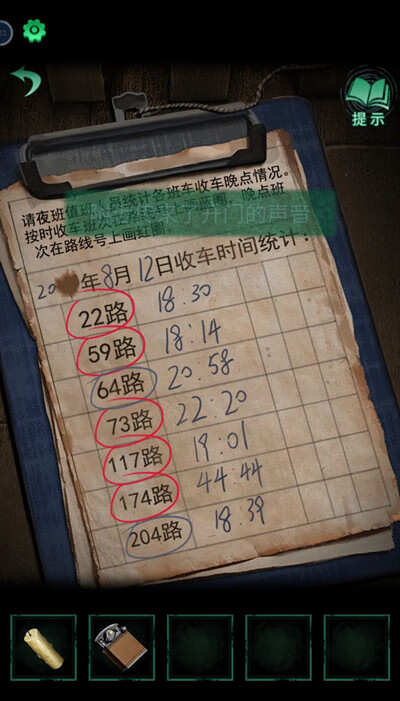 提示
请夜班值班人员统计各班车收车晚点情况。
按时收车班次在路线号上画蓝圈，晚点班
次在路线号上画红圈。
了开门的声音
年8月12日收车时间统计：
22路 18:30
59路 18:14
64路 20:58
73路 22:20
117路 19:01
174路 44:44
204路 18:39